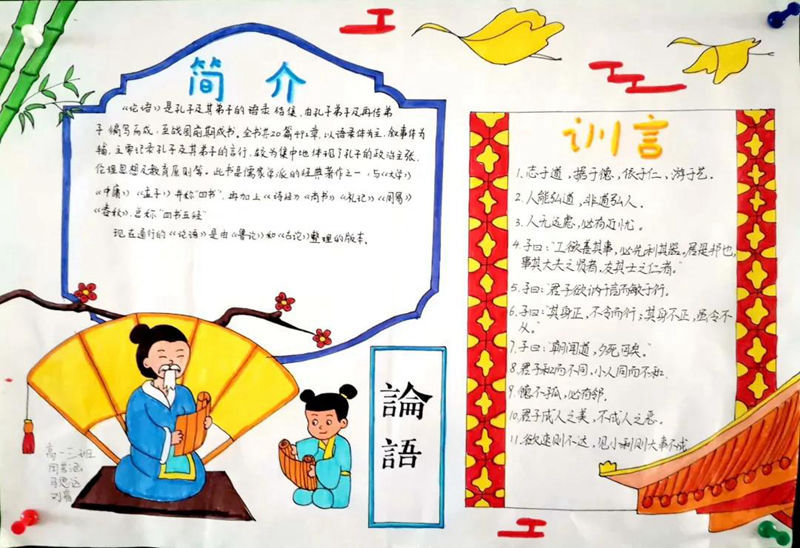 简 介
《论语》是孔子及其弟子的语录结集,由孔子弟子及再传弟
子编写而成,至战国前期成书。全书共20篇492章,以语录体为主,叙事体为
辅,主要记录孔子及其弟子的言行,较为集中地体现了孔子的政治主张,
伦理思想及教育原则等。此书是儒家学派的经典著作之一,与《大学》
《中庸》《孟子》并称"四书",再加上《诗经》《尚书》《礼记》《周易》
《春秋》,总称"四书五经"
现在通行的《论语》是由《鲁论》和《古论》整理的版本。
训言
1.志于道,据于德,依于仁,游于艺。
2.人能弘道,非道弘人。
3.人无远虑,必有近忧。
4.子曰:"工欲善其事,必先利其器。居是邦也,
事其大夫之贤者,友其士之仁者。"
5.子曰:"君子欲讷于言而敏于行。
6.子曰:"其身正,不令而行;其身不正,虽令不
从。"
7.子曰:"朝闻道,夕死可矣。"
8.君子和而不同,小人同而不和.
9.德不孤,必有邻。
10.君子成人之美,不成人之恶。
11.欲速则不达,见小利则大事不成
論語
高一三班